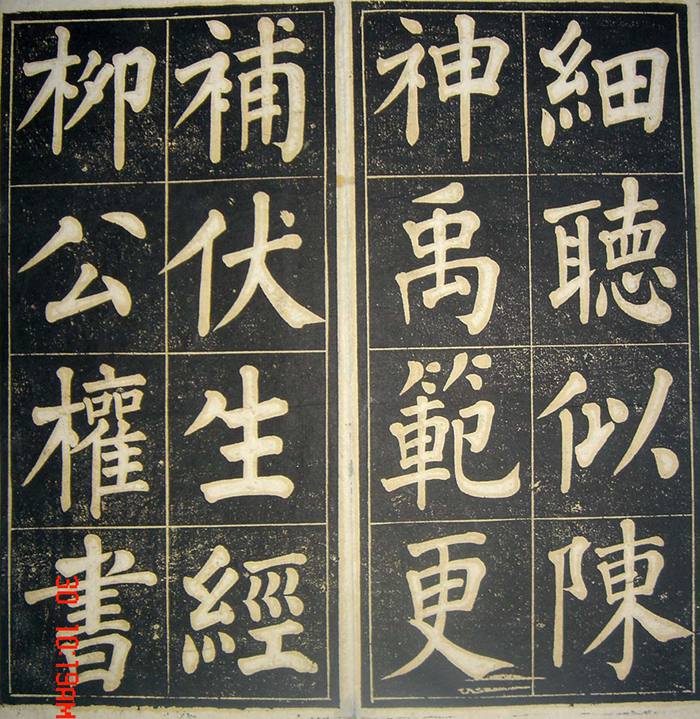 細聽似陳
神禹範更
補伏生經
柳公權書
30 10:19AM